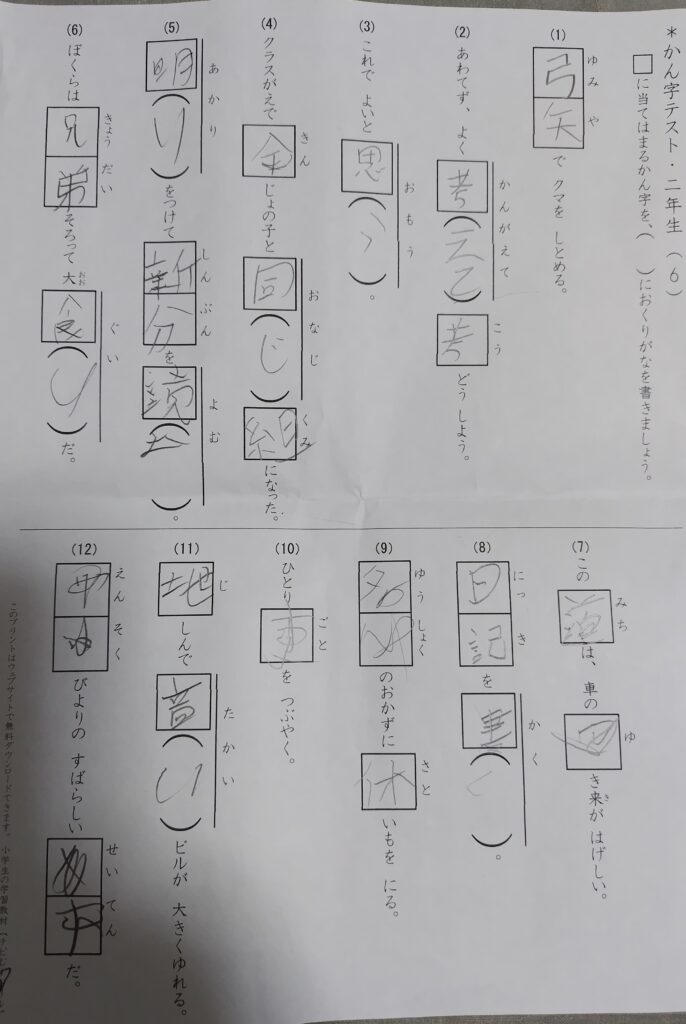 ＊かん字テスト・二年生（6）
□に当てはまるかん字を、（　）におくりがなを書きましょう。
(1)
ゆみ や
弓矢で クマを しとめる。
(2)
かんがえて こう
あわてず、よく考（えて）考どう しよう。
(3)
おもう
これで よいと思（う）。
(4)
きん おなじ くみ
クラスがえで金じょの子と同（じ）組になった。
(5)
あかり しん ぶん よむ
明（り）をつけて新分を読（む）。
(6)
きょう だい おお ぐい
ぼくらは兄弟そろって 大食（い）だ。
(7)
みち ゆ き
この道は、車の き来が はげしい。
(8)
にっ き かく
日記を書（く）。
(9)
ゆう しょく さと
のおかずに休いもを にる。
(10)
ごと
ひとり事を つぶやく。
(11)
じ たかい
地しんで（い）ビルが 大きくゆれる。
(12)
えん そく せい てん
びよりの すばらしい だ。
このプリントはウェブサイトで無料ダウンロードできます。 小学生の学習教材